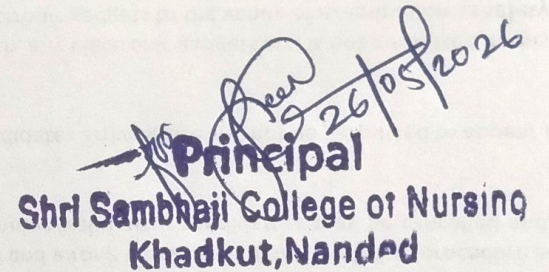 26/05/2026
Principal
Shri Sambhaji College of Nursing
Khadkut, Nanded